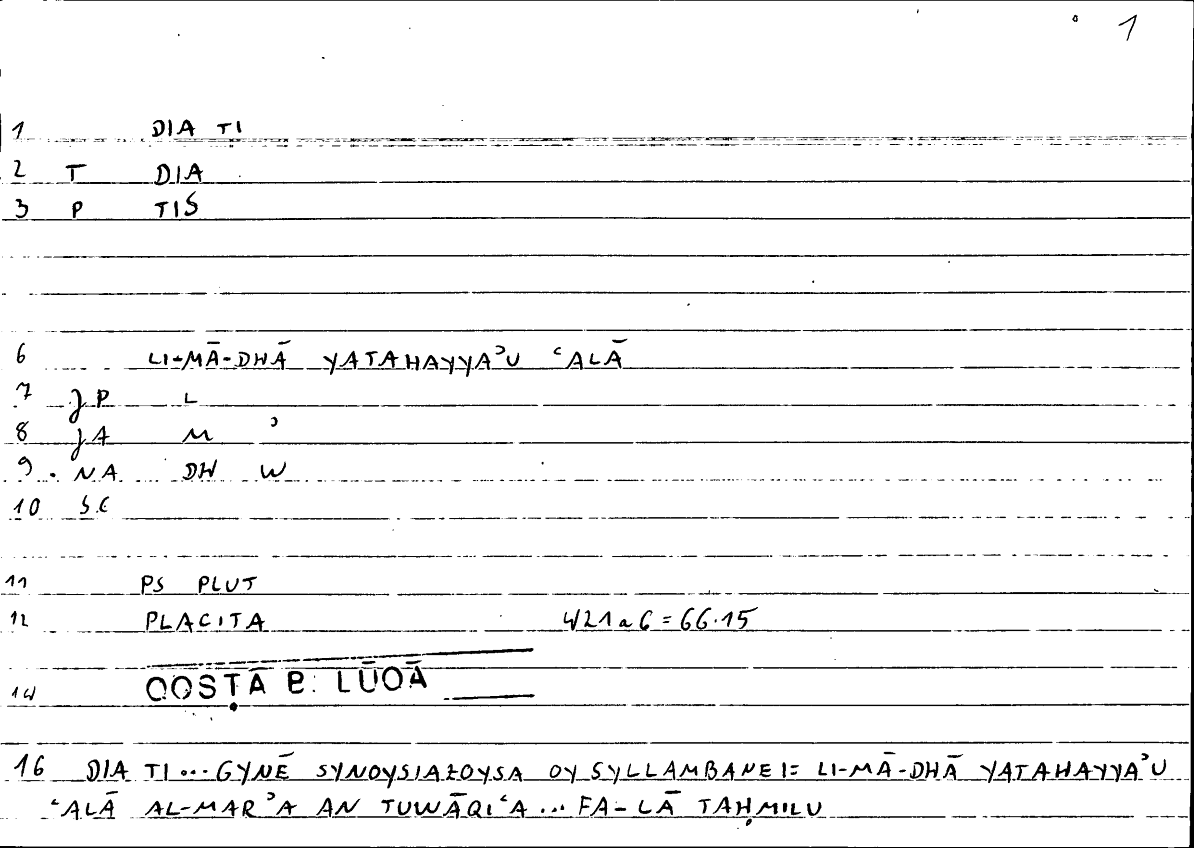 1
1 DIA TI
2 T DIA
3 P TIS
6 LI-MĀ-DHĀ YATAHAYYAʾU ʿALĀ
7 JP L
8 JA M ʾ
9 NA DH W
10 SC
11 PS PLUT
12 PLACITA 421a6=66.15
14 QOSṬĀ B. LŪQĀ
16 DIA TI...GYNĒ SYNOYSIAZOYSA OY SYLLAMBANEI= LI-MĀ-DHĀ YATAHAYYAʾU
ʿALĀ AL-MARʾA AN TUWĀQIʿA ... FA-LĀ TAḤMILU